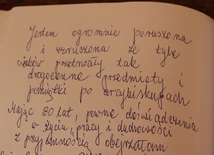 Jestem ogromnie poruszona
i wzruszona że tyle
tak
drogocenne przedmioty i
pamiątki po arcybiskupach
Mając 80 lat, pewne doświadczenia
w życia, pracy i duchowości
z przyjemnością obejrzałam